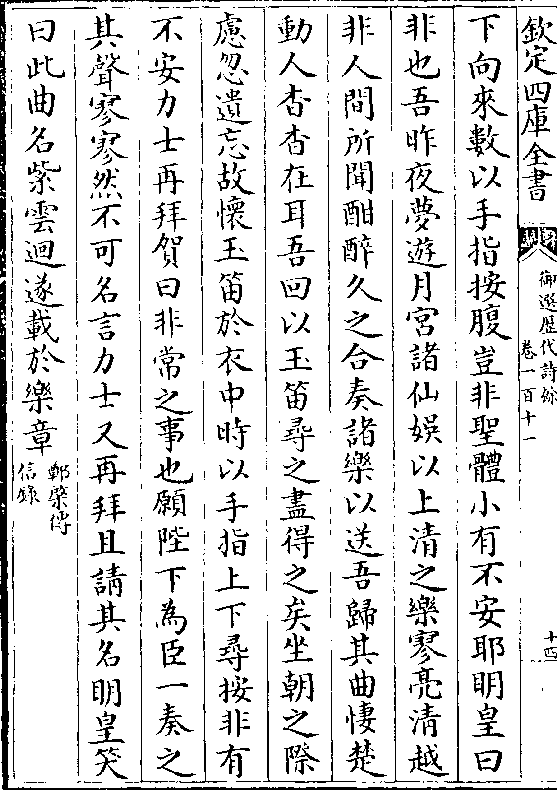 欽定四庫全書
御選歷代詩餘
卷一百十一
十四
下向來數以手指按腹豈非聖體小有不安耶明皇曰
非也吾昨夜夢遊月宮諸仙娛以上清之樂寥亮清越
非人間所聞酣醉久之合奏諸樂以送吾歸其曲悽楚
動人杳杳在耳吾回以玉笛尋之盡得之矣坐朝之際
慮忽遺忘故懷玉笛於衣中時以手指上下尋按非有
不安力士再拜賀曰非常之事也願陛下為臣一奏之
其聲寥寥然不可名言力士又再拜且請其名明皇笑
曰此曲名紫雲迴遂載於樂章鄭棨傳
信錄